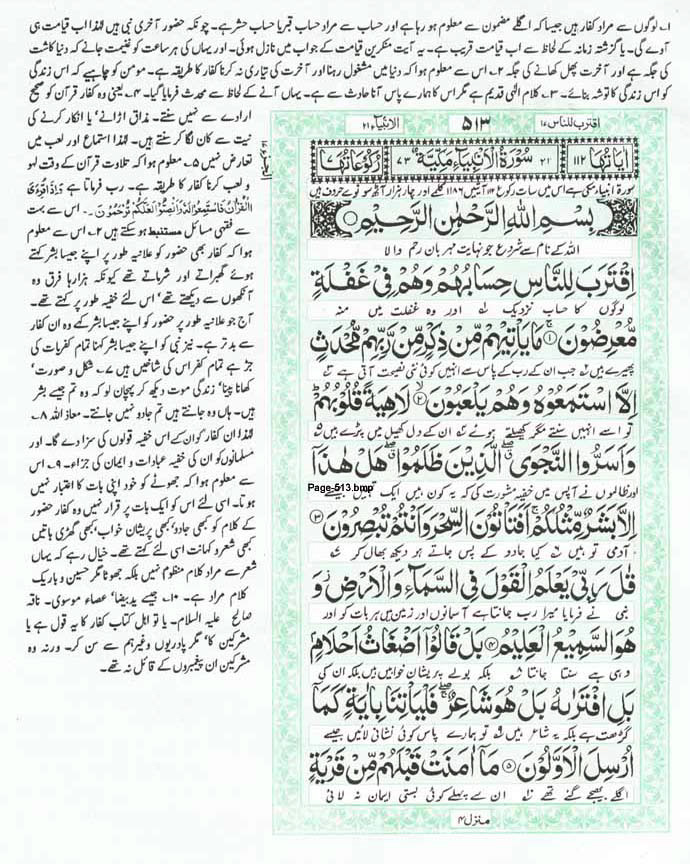 ۱۔ لوگوں سے مراد کفار ہیں جیسا کہ اگلے مضمون سے معلوم ہو رہا ہے اور حساب سے مراد حساب قبر یا حساب حشر ہے۔ چونکہ حضور آخری نبی ہیں لہٰذا اب قیامت ہی
آوے گی۔ یا گزشتہ زمانہ کے لحاظ سے اب قیامت قریب ہے۔ یہ آیت منکرین قیامت کے جواب میں نازل ہوئی۔ اور یہاں کی ہر ساعت کو غنیمت جانے کہ دنیا کاشت
کی جگہ ہے اور آخرت پھل کھانے کی جگہ ۲۔ اس سے معلوم ہوا کہ دنیا میں مشغول رہنا اور آخرت کی تیاری نہ کرنا کفار کا طریقہ ہے۔ مومن کو چاہیے کہ اس زندگی
کو اس زندگی کا توشہ بنائے۔ ۳۔ کلام الٰہی قدیم ہے مگر اس کا ہمارے پاس آنا حادث سے ہے۔ یہاں آنے کے لحاظ سے محدث فرمایا گیا۔ ۴۔ یعنی وہ کفار قرآن کو صحیح
ارادے سے نہیں سنتے۔ مذاق اڑانے' یا انکار کرنے کی
نیت سے کان لگا کر سنتے ہیں۔ لہٰذا استماع اور لعب میں
تعارض نہیں ۵۔ معلوم ہوا کہ تلاوت قرآن کے وقت لہو
و لعب کرنا کفار کا طریقہ ہے۔ رب فرماتا ہے وَاِذَا قُرِئَ
الْقُرْاٰنُ فَاسْتَمِعُوْا لَهٗ وَاَنْصِتُوْا لَعَلَّكُمْ تُرْحَمُوْنَ۔ اس سے بہت
سے فقہی مسائل مستنبط ہو سکتے ہیں ۶۔ اس سے معلوم
ہوا کہ کفار بھی حضور کو علانیہ طور پر اپنے جیسا بشر کہتے
ہوئے گھبراتے اور شرماتے تھے کیونکہ ہزارہا فرق وہ
آنکھوں سے دیکھتے تھے' اس لئے خفیہ طور پر کہتے تھے۔
آج جو علانیہ طور پر حضور کو اپنے جیسا بشر کہے وہ ان کفار
سے بدتر ہے۔ نیز نبی کو اپنے جیسا بشر کہنا تمام کفریات کی
جڑ ہے تمام کفر اس کی شاخیں ہیں ۷۔ شکل و صورت'
کھانا پینا' زندگی موت دیکھ کر پہچان لو کہ وہ تم جیسے بشر
ہیں۔ ہاں وہ جانتے ہیں تم جادو نہیں جانتے۔ معاذ اللہ ۸۔
لہٰذا ان کفار کو ان کے اس خفیہ قولوں کی سزا دے گا۔ اور
مسلمانوں کو ان کی خفیہ عبادات و ایمان کی جزاء۔ ۹۔ اس
سے معلوم ہوا کہ جھوٹے کو خود اپنی بات کا اعتبار نہیں
ہوتا۔ اسی لئے اس کو ایک بات پر قرار نہیں وہ کفار حضور
کے کلام کو کبھی جادو' کبھی پریشان خواب' کبھی گھڑی باتیں
کبھی شعر و کہانت اسی لئے کہتے تھے۔ خیال رہے کہ یہاں
شعر سے مراد کلام منظوم نہیں بلکہ جھوٹا مگر حسین و باریک
کلام مراد ہے۔ ۱۰۔ جیسے ید بیضا' عصاء موسوی۔ ناقہ
صالح علیہ السلام۔ یا تو اہل کتاب کفار کا یہ قول ہے یا
مشرکین کا' مگر پادریوں وغیرہم سے سن کر۔ ورنہ وہ
مشرکین ان پیغمبروں کے قائل نہ تھے۔
اقترب للناس ۱۷
۵۱۳
الانبیاء ۲۱
اٰیَاتُهَا ۱۱۲
۲۱ سُوْرَةُ الْاَنْبِيَآءِ مَكِّيَّةٌ ۷۳
رُكُوْعَاتُهَا
سورۃ انبیاء مکی ہے اس میں سات رکوع ۱۱۲ آیتیں ۱۱۸۶ کلمے اور چار ہزار آٹھ سو نوے حروف ہیں
بِسْمِ اللّٰهِ الرَّحْمٰنِ الرَّحِيْمِ
اللہ کے نام سے شروع جو نہایت مہربان رحم والا
اِقْتَرَبَ لِلنَّاسِ حِسَابُهُمْ وَهُمْ فِيْ غَفْلَةٍ
لوگوں کا حساب نزدیک اور وہ غفلت میں منہ
مُّعْرِضُوْنَ ۱ مَا يَاْتِيْهِمْ مِّنْ ذِكْرٍ مِّنْ رَّبِّهِمْ مُّحْدَثٍ
پھیرے ہیں جب ان کے رب کے پاس سے انہیں کوئی نئی نصیحت آتی ہے
اِلَّا اسْتَمَعُوْهُ وَهُمْ يَلْعَبُوْنَ ۲ لَاهِيَةً قُلُوْبُهُمْ
تو اسے نہیں سنتے مگر کھیلتے ہوئے ان کے دل کھیل میں پڑے ہیں
وَاَسَرُّوا النَّجْوَى الَّذِيْنَ ظَلَمُوْا هَلْ هٰذَا
اور ظالموں نے آپس میں خفیہ مشورت کی کہ یہ کون ہیں ایک تمہیں جیسے
Page-513.bmp
اِلَّا بَشَرٌ مِّثْلُكُمْ اَفَتَاْتُوْنَ السِّحْرَ وَاَنْتُمْ تُبْصِرُوْنَ ۳
آدمی تو ہیں کیا جادو کے پس جاتے ہو دیکھ بھال کر
قٰلَ رَبِّيْ يَعْلَمُ الْقَوْلَ فِي السَّمَآءِ وَالْاَرْضِ وَ
نبی نے فرمایا میرا رب جانتا ہے آسمانوں اور زمین میں ہر بات کو اور
هُوَ السَّمِيْعُ الْعَلِيْمُ ۴ بَلْ قَالُوْٓا اَضْغَاثُ اَحْلَامٍ
وہی ہے سنتا جانتا بلکہ بولے پریشان خوابیں ہیں بلکہ ان کی
بَلِ افْتَرٰىهُ بَلْ هُوَ شَاعِرٌ فَلْيَاْتِنَا بِاٰيَةٍ كَمَآ
گڑھت ہے بلکہ یہ شاعر ہیں تو ہمارے پاس کوئی نشانی لائیں جیسے
اُرْسِلَ الْاَوَّلُوْنَ ۵ مَآ اٰمَنَتْ قَبْلَهُمْ مِّنْ قَرْيَةٍ
اگلے بھیجے گئے تھے ان سے پہلے کوئی بستی ایمان نہ لائی
منزل ۴